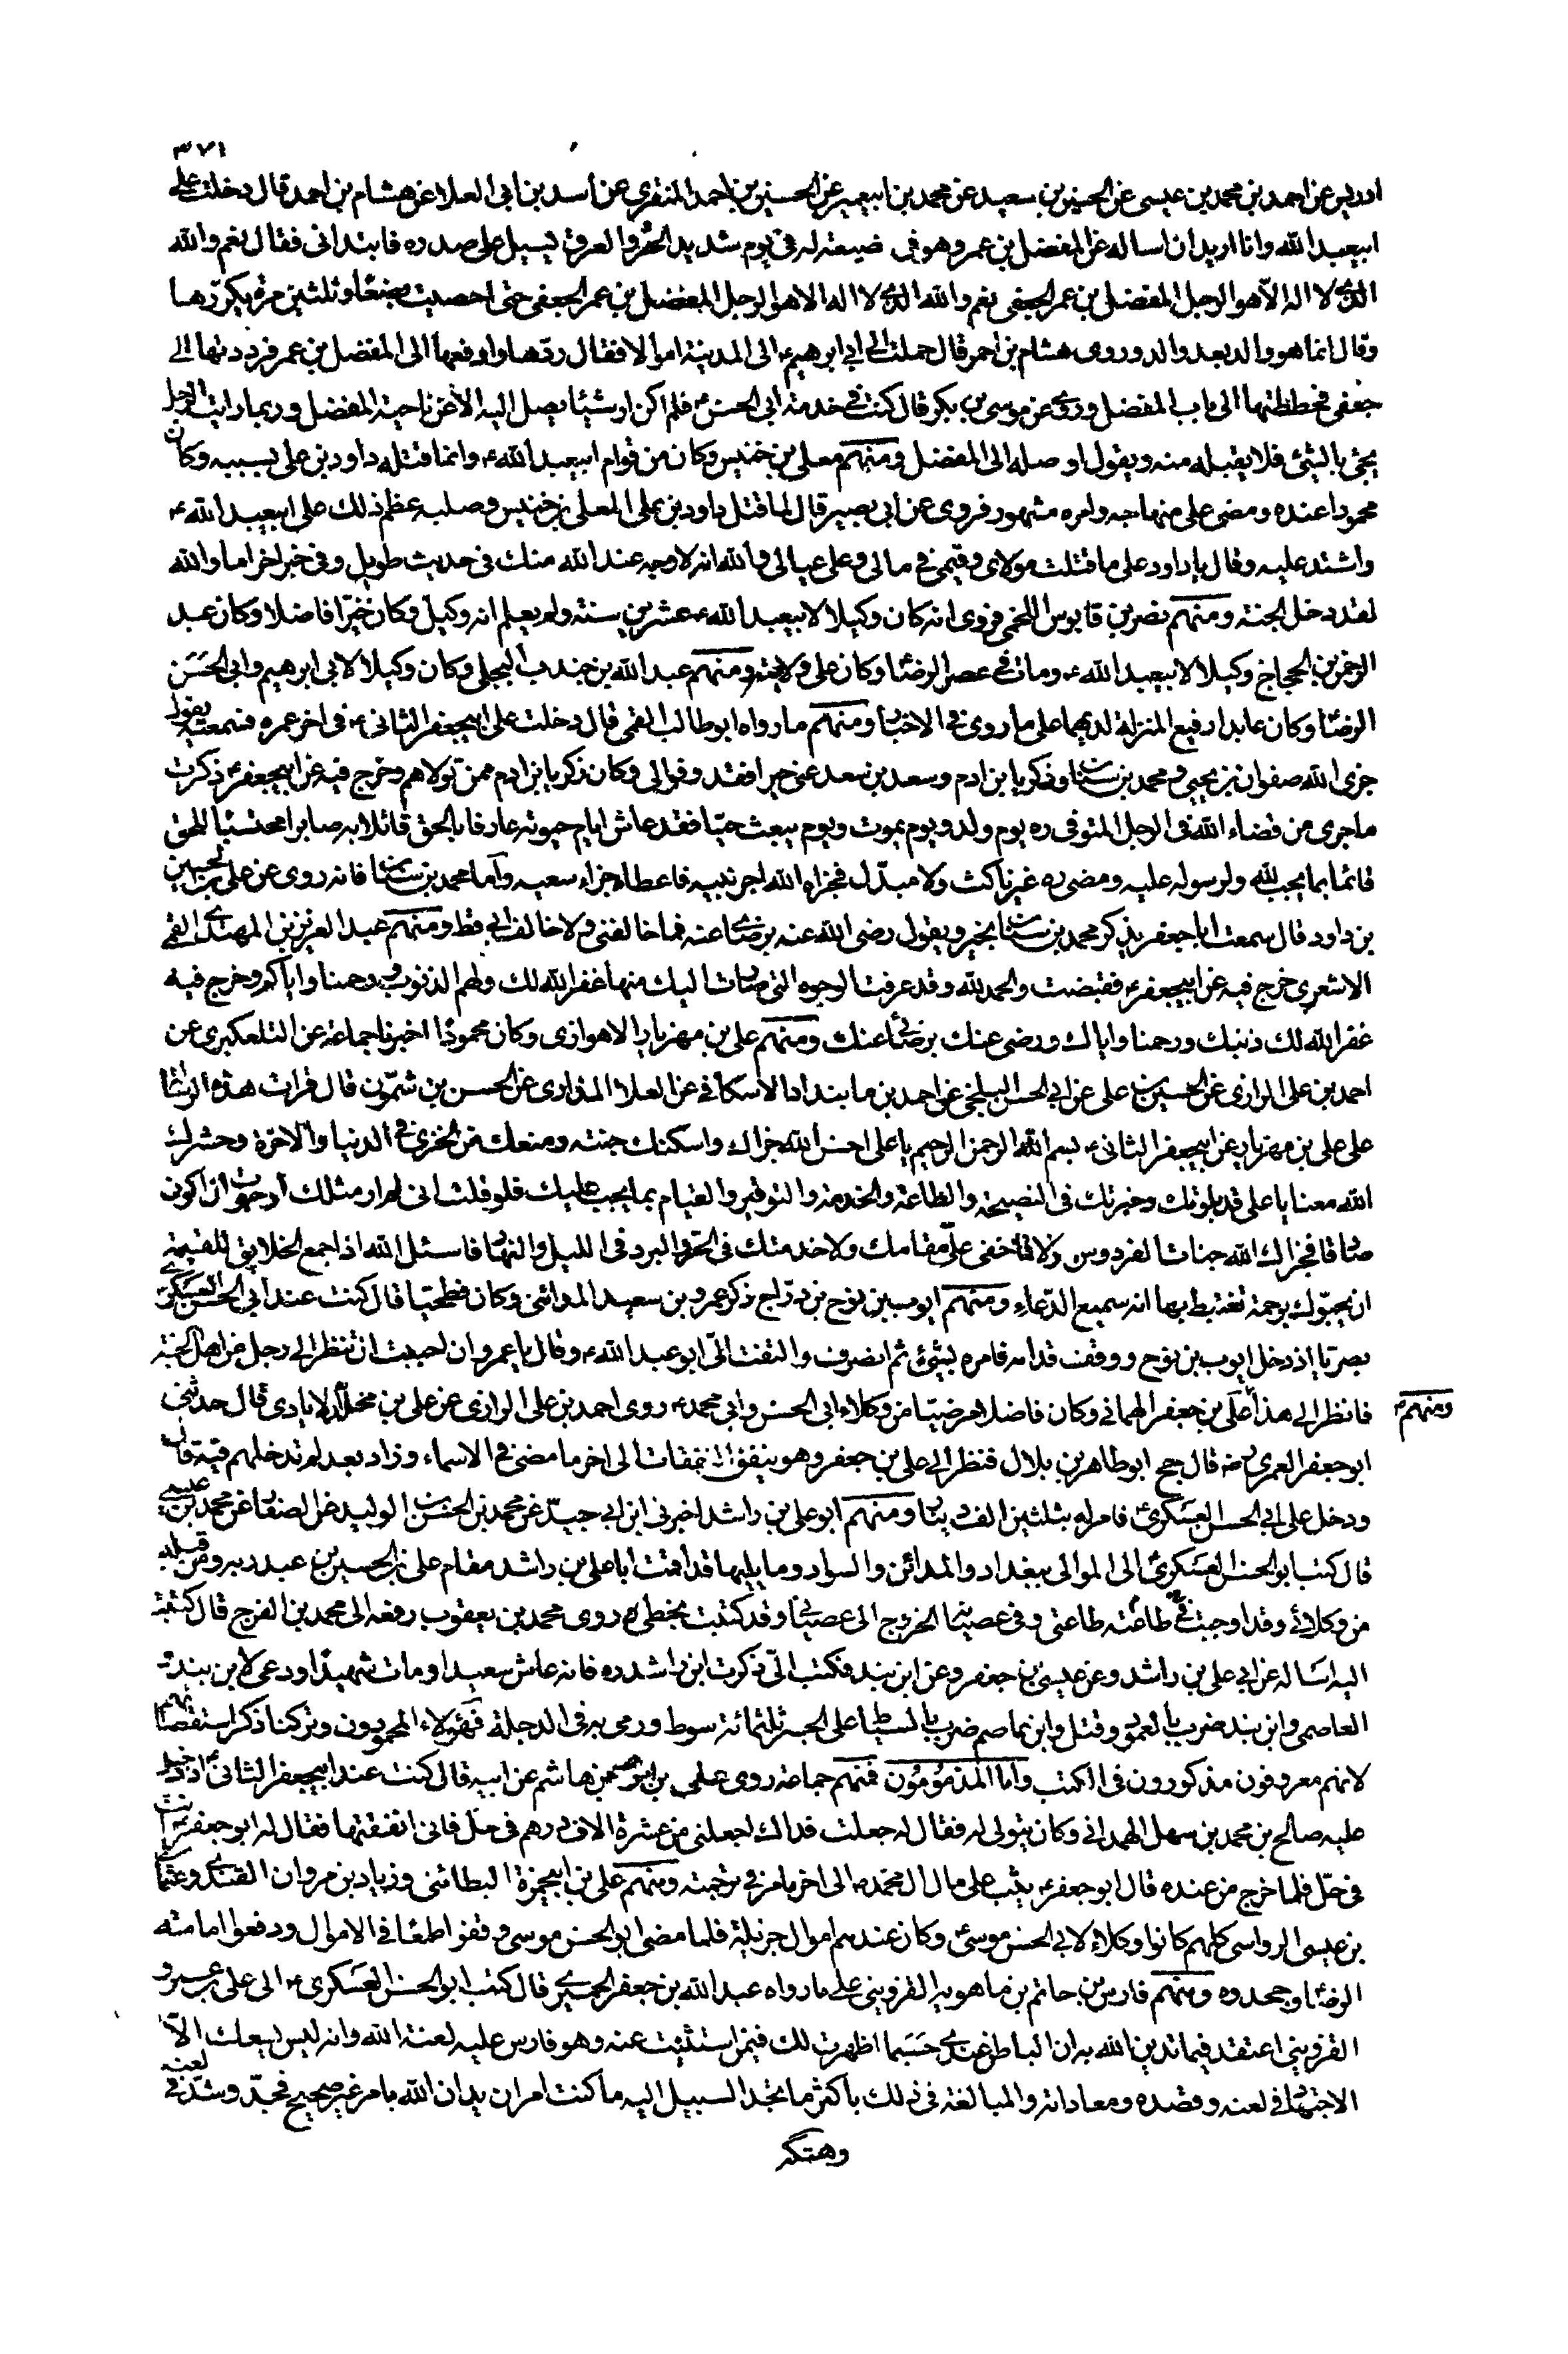 ٣٧١
ادريس عن احمد بن محمد بن عيسى عن الحسين بن سعيد عن محمد بن ابيعمير عن الحسين بن احمد المنقري عن اسد بن ابى العلا عن هشام بن احمد قال دخلت على
ابيعبد الله وانا اريد ان اساله عن المفضل بن عمر وهو فى ضيعته له فى يوم شديد الحر والعرق يسيل على صدره فابتدانى فقال نعم والله
الذى لا اله الا هو الرجل المفضل بن عمر الجعفى نعم والله الذى لا اله الا هو الرجل المفضل بن عمر الجعفى حتى احصيت بضعا وثلثين مرة يكررها
وقال انما هو والد بعد والد وروى هشام بن احمر قال حملت الى ابى ابرهيم ع الى المدينة اموالا فقال ردها وادفعها الى المفضل بن عمر فرددتها الى
جعفى فحططتها الى باب المفضل وروى عن موسى بن بكر قال كنت فى خدمة ابى الحسن ع فلم اكن ارى شيئا يصل اليه الا من ناحية المفضل وربما رايت الرجل
يجئ بالشئ فلا يقبله منه ويقول اوصله الى المفضل ومنهم معلى بن خنيس وكان من قوام ابيعبد الله ع وانما قتله داود بن على بسببه وكان
محمودا عنده ومضى على منهاجه وامره مشهور فروى عن ابى بصير قال لما قتل داود بن على المعلى بن خنيس وصلبه عظم ذلك على ابيعبد الله ع
واشتد عليه وقال يا داود على ما قتلت مولاى وقيمى فى مالى وعلى عيالى والله انه لاوجه عند الله منك فى حديث طويل وفى خبر اخر اما والله
لقد دخل الجنة ومنهم نصر بن قابوس اللخمى فروى انه كان وكيلا لابيعبد الله ع عشرين سنة ولم يعلم انه وكيل وكان خيرا فاضلا وكان عبد
الرحمن بن الحجاج وكيلا لابيعبد الله ع ومات فى عصر الرضا وكان على ولايته ومنهم عبد الله بن جندب البجلى وكان وكيلا لابى ابرهيم وابى الحسن
الرضا وكان عابدا رفيع المنزلة لديهما على ما روى فى الاخبار ومنهم ما رواه ابو طالب القمى قال دخلت على ابيجعفر الثانى ع فى اخر عمره فسمعته يقول
جزى الله صفوان بن يحيى ومحمد بن سنان وزكريا ابن ادم وسعد بن سعد عنى خيرا فقد وفوا لى وكان زكريا ابن ادم ممن تولاهم وخرج فيه عن ابيجعفر ع ذكرت
ما جرى من قضاء الله فى الرجل المتوفى ره يوم ولد ويوم يموت ويوم يبعث حيا فقد عاش ايام حيوته عارفا بالحق قائلا به صابرا محتسبا للحق
قائما بما يجب لله ولرسوله عليه ومضى ره غير ناكث ولا مبدل فجزاه الله اجر نيته فاعطاه جزاء سعيه واما محمد بن سنان فانه روى عن على بن الحسين
بن داود قال سمعت ابا جعفر يذكر محمد بن سنان بخير ويقول رضى الله عنه برضاى عنه فما خالفنى ولا خالف ابى قط ومنهم عبد العزيز بن المهتدى القمى
الاشعرى خرج فيه عن ابيجعفر ع فقبضت والحمد لله وقد عرفت الوجوه التى صارت اليك منها غفر الله لك ولهم الذنوب ورحمنا واياكم وخرج فيه
غفر الله لك ذنبك ورحمنا واياك ورضى عنك برضائى عنك ومنهم على بن مهزيار الاهوازى وكان محمودا اخبرنا جماعة عن التلعكبرى عن
احمد بن على الرازى عن الحسين بن على عن ابى الحسن البلخى عن احمد بن مابنداد الاسكافى عن العلا المذارى عن الحسن بن شمون قال قرات هذه الرسالة
على على بن مهزيار عن ابيجعفر الثانى ع بسم الله الرحمن الرحيم يا على احسن الله جزاك واسكنك جنته ومنعك من الخزى فى الدنيا والاخرة وحشرك
الله معنا يا على قد بلوتك وخبرتك فى النصيحة والطاعة والخدمة والتوقير والقيام بما يجب عليك فلو قلت انى لم ار مثلك لرجوت ان اكون
صادقا فجزاك الله جنات الفردوس نزلا فما خفى على مقامك ولا خدمتك فى الحر والبرد فى الليل والنهار فاسئل الله اذا جمع الخلايق للقيمة
ان يحبوك برحمة تغتبط بها انه سميع الدعاء ومنهم ايوب بن نوح بن دراج ذكر عمرو بن سعيد المدائنى وكان فطحيا قال كنت عند ابى الحسن العسكرى
بصريا اذ دخل ايوب بن نوح ووقف قدامه فامره بشئ ثم انصرف والتفت الى ابو عبد الله ع وقال يا عمرو ان احببت ان تنظر الى رجل من اهل الجنة
فانظر الى هذا على بن جعفر الهمانى وكان فاضلا مرضيا من وكلاء ابى الحسن وابى محمد ع روى احمد بن على الرازى عن على بن مخلد الايادى قال حدثنى
ومنهم
ابو جعفر العمرى رضه قال حج ابو طاهر بن بلال فنظر الى على بن جعفر وهو ينفق النفقات الى اخر ما مضى فى الاسماء وزاد بعد لم تدخلهم فيه قال
ودخل على ابى الحسن العسكرى فامر له بثلثين الف دينار ومنهم ابو على بن راشد اخبرنى ابن ابى جيد عن محمد بن الحسن بن الوليد عن الصفار عن محمد بن عيسى
قال كتب ابو الحسن العسكرى الى الموالى ببغداد والمدائن والسواد وما يليها قد اقمت ابا على بن راشد مقام على بن الحسين بن عبد ربه ومن قبله
من وكلائى وقد اوجبت فى طاعته طاعتى وفى عصيانه الخروج الى عصيانى وقد كتبت بخطى روى محمد بن يعقوب رفعه الى محمد بن الفرج قال كتبت
اليه اساله عن ابى على بن راشد وعن عيسى بن جعفر وعن ابن بند فكتب الى ذكرت ابن راشد ره فانه عاش سعيدا ومات شهيدا ودعى لابن بند و
العاصمى وابن بند ضرب بالعمود وقتل وابن عاصم ضرب بالسياط على الجسر ثلثمائة سوط ورمى به فى الدجلة فهؤلاء المحمودون وتركنا ذكر استقصائهم
لانهم معروفون مذكورون فى الكتب واما المذمومون فمنهم جماعة روى على بن ابرهيم بن هاشم عن ابيه قال كنت عند ابيجعفر الثانى ع اذ دخل
عليه صالح بن محمد بن سهل الهمدانى وكان يتولى له فقال له جعلت فداك اجعلنى من عشرة الاف درهم فى حل فانى انفقتها فقال له ابو جعفر ع انت
فى حل فلما خرج من عنده قال ابو جعفر ع يثب على مال ال محمد ص الى اخر ما مر فى ترجمته ومنهم على بن ابيحمزة البطائنى وزياد بن مروان القندى وعثمان
بن عيسى الرواسى كلهم كانوا وكلاء لابى الحسن موسى ع وكان عندهم اموال جزيلة فلما مضى ابو الحسن موسى وقفوا طمعا فى الاموال ودفعوا امامة
الرضا وجحدوه ومنهم فارس بن حاتم بن ماهويه القزوينى على ما رواه عبد الله بن جعفر الحميرى قال كتب ابو الحسن العسكرى ع الى على بن عمرو
القزوينى اعتقد فيما تدين الله به ان الباطن عندى حسبما اظهرت لك فيمن استنبئت عنه وهو فارس عليه لعنة الله وانه ليس يسعك الا
الاجتهاد فى لعنه وقصده ومعاداته والمبالغة فى ذلك باكثر ما تجد السبيل اليه ما كنت امر ان يدان الله بامر غير صحيح فجد وشد فى لعنه
وهتكه